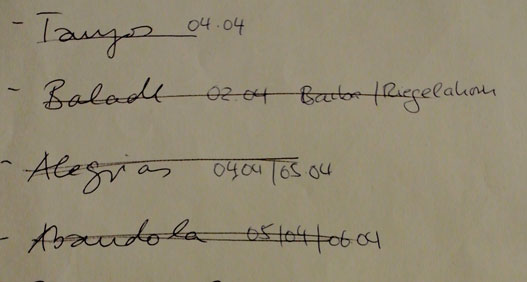 - Tangos 04.04
- Balade 02.04 Barbor / Riegelahorn
- Alegrias 04/04/05 04
- Abandola 05/04/06 04